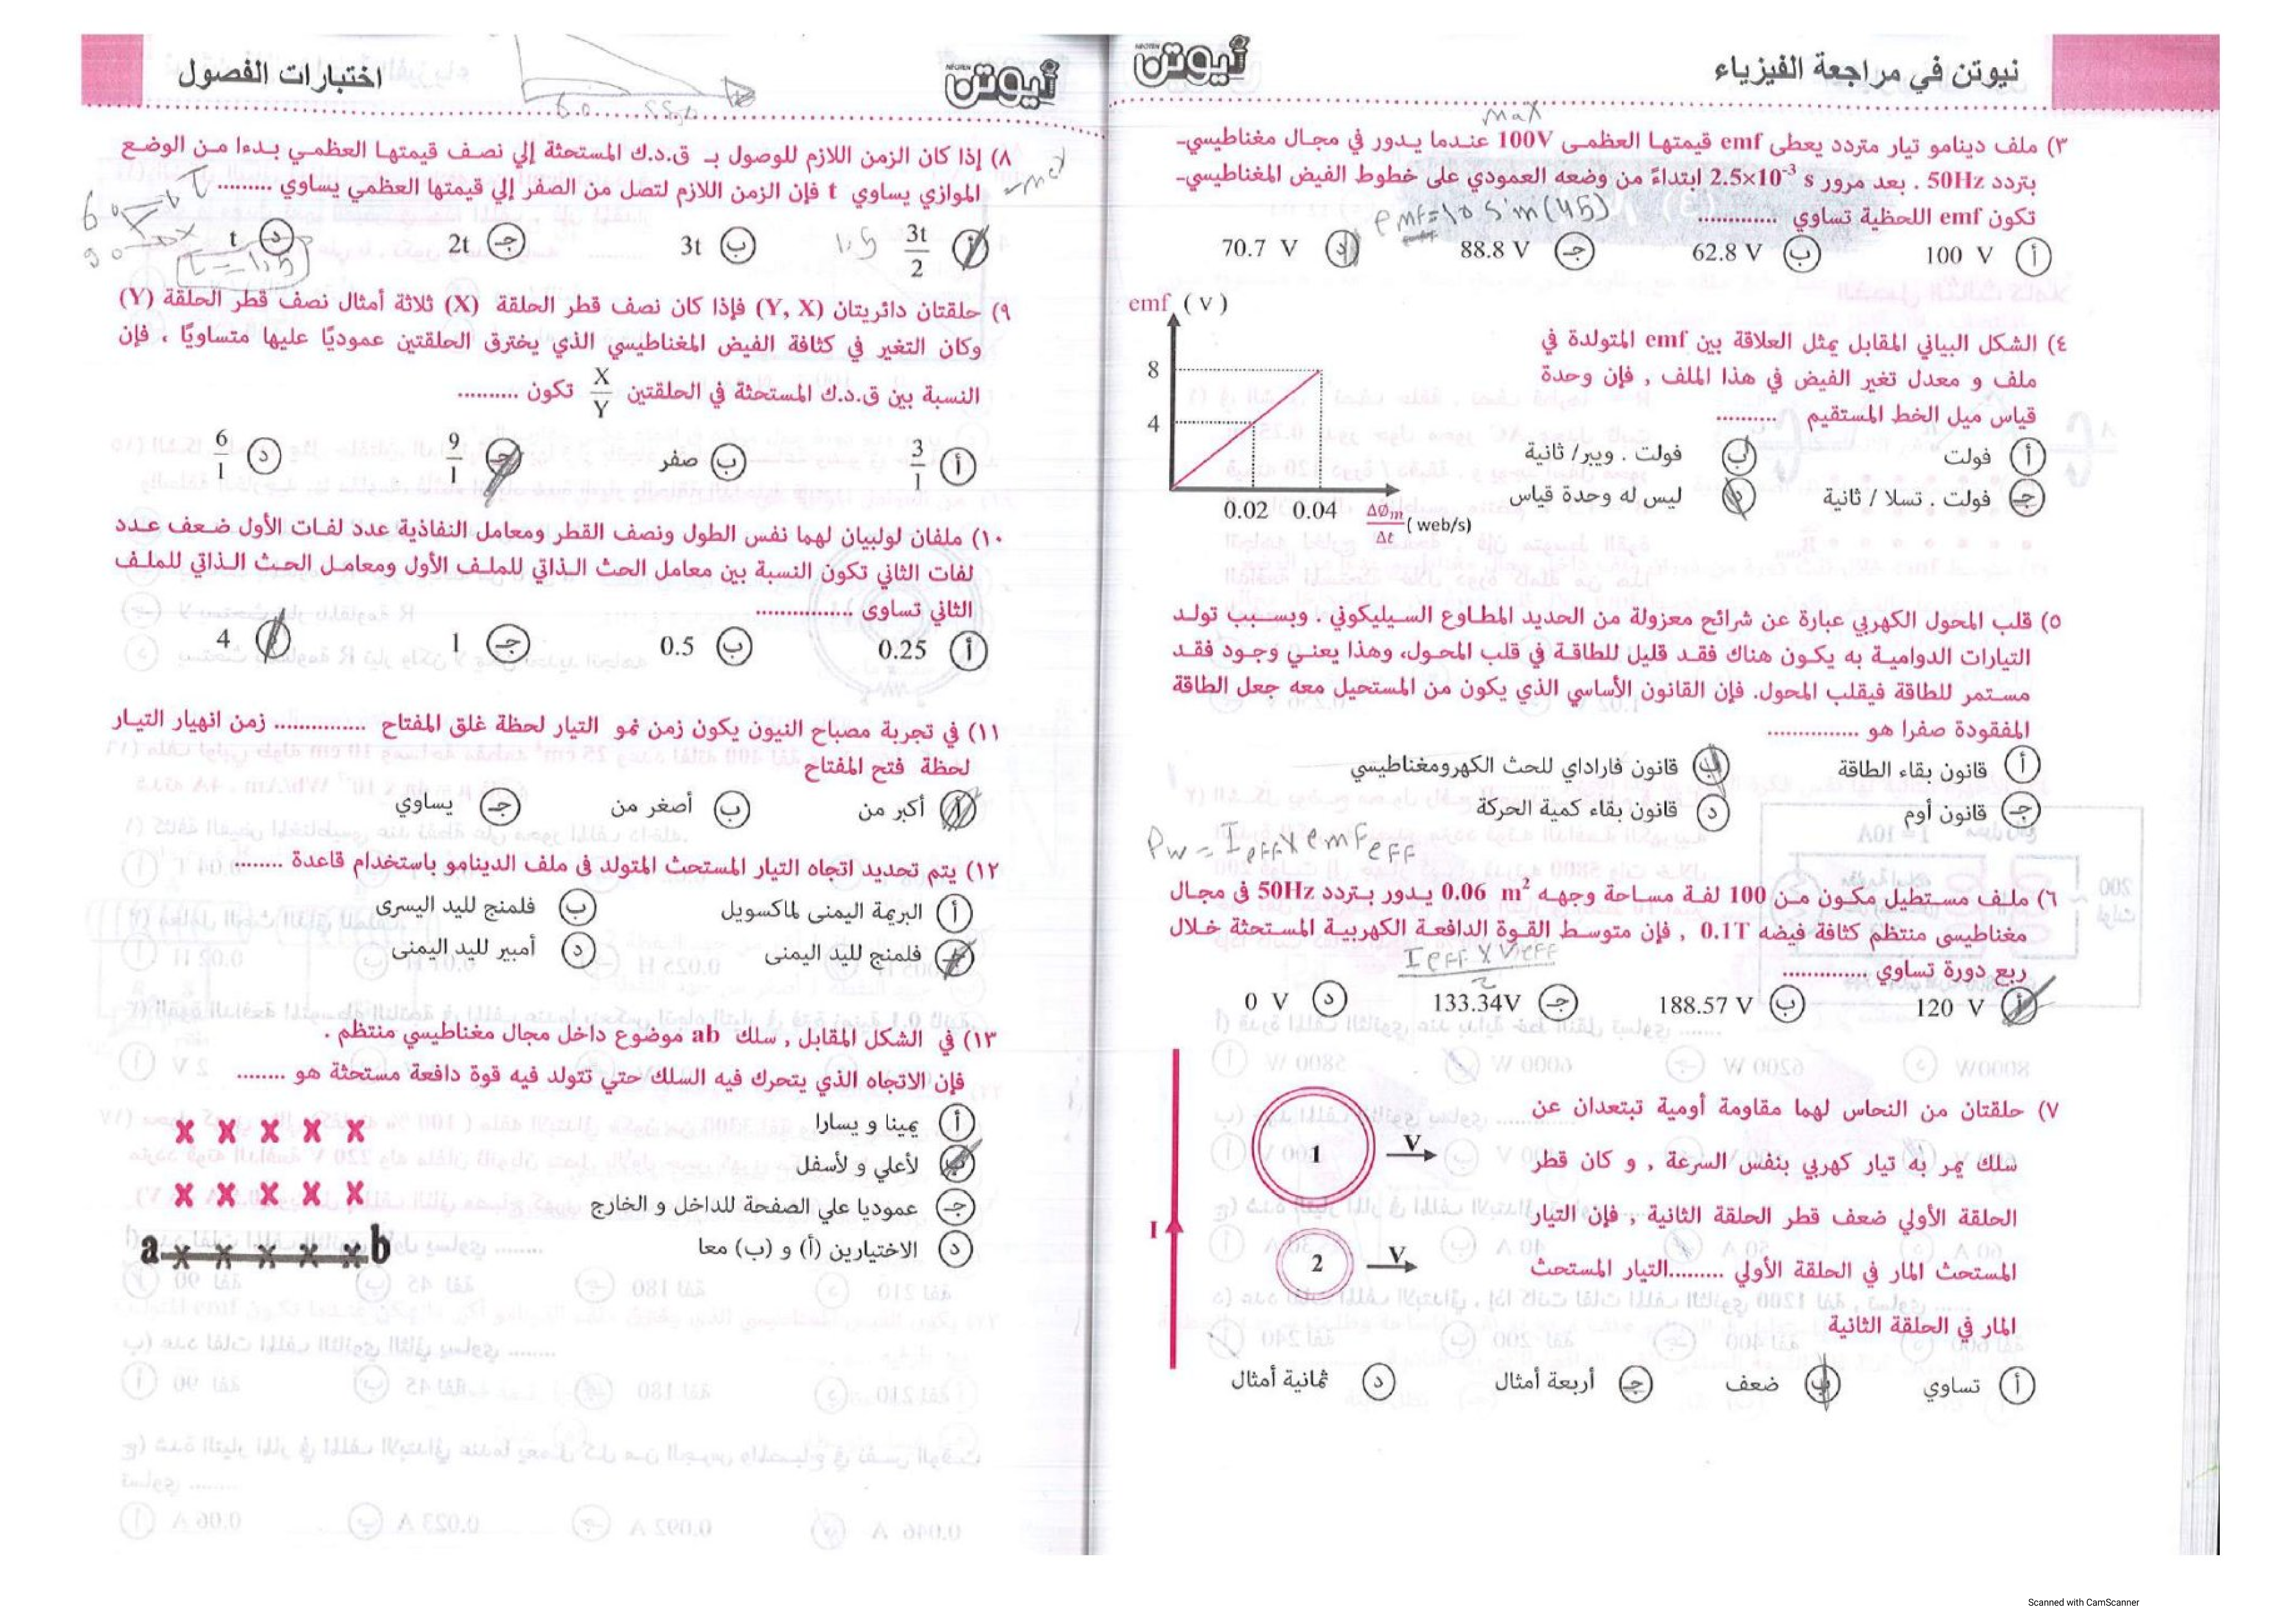 نيوتن في مراجعة الفيزياء
نيوتن
NEOTEN
max
٣) ملف دينامو تيار متردد يعطى emf قيمتها العظمى 100V عندما يدور في مجال مغناطيسي-
بتردد 50Hz . بعد مرور 2.5×10⁻³ s ابتداءً من وضعه العمودي على خطوط الفيض المغناطيسي-
تكون emf اللحظية تساوي ..............
emf=10 sin(45)
أ 100 V ب 62.8 V جـ 88.8 V د 70.7 V
٤) الشكل البياني المقابل يمثل العلاقة بين emf المتولدة في
ملف و معدل تغير الفيض في هذا الملف , فإن وحدة
قياس ميل الخط المستقيم ..........
أ فولت ب فولت . ويبر/ ثانية
جـ فولت . تسلا / ثانية د ليس له وحدة قياس
emf ( V )
8
4
0.02 0.04 ΔØm/Δt ( web/s)
٥) قلب المحول الكهربي عبارة عن شرائح معزولة من الحديد المطاوع السيليكوني . وبسبب تولد
التيارات الدوامية به يكون هناك فقد قليل للطاقة في قلب المحول، وهذا يعني وجود فقد
مستمر للطاقة فيقلب المحول. فإن القانون الأساسي الذي يكون من المستحيل معه جعل الطاقة
المفقودة صفرا هو ...............
أ قانون بقاء الطاقة ب قانون فاراداي للحث الكهرومغناطيسي
جـ قانون أوم د قانون بقاء كمية الحركة
Pw = Ieff x emfeff
٦) ملف مستطيل مكون من 100 لفة مساحة وجهه 0.06 m² يدور بتردد 50Hz فى مجال
مغناطيسى منتظم كثافة فيضه 0.1T , فإن متوسط القوة الدافعة الكهربية المستحثة خلال
ربع دورة تساوي ..............
أ 120 V ب 188.57 V جـ 133.34V د 0 V
٧) حلقتان من النحاس لهما مقاومة أومية تبتعدان عن
سلك يمر به تيار كهربي بنفس السرعة , و كان قطر
الحلقة الأولي ضعف قطر الحلقة الثانية , فإن التيار
المستحث المار في الحلقة الأولي .........التيار المستحث
المار في الحلقة الثانية
أ تساوي ب ضعف جـ أربعة أمثال د ثمانية أمثال
1 V
I
2 V
اختبارات الفصول
نيوتن
NEOTEN
٨) إذا كان الزمن اللازم للوصول بـ ق.د.ك المستحثة إلي نصف قيمتها العظمي بدءا من الوضع
الموازي يساوي t فإن الزمن اللازم لتصل من الصفر إلي قيمتها العظمي يساوي .........
أ 3t/2 ب 3t جـ 2t د t
1,5
٩) حلقتان دائريتان (Y, X) فإذا كان نصف قطر الحلقة (X) ثلاثة أمثال نصف قطر الحلقة (Y)
وكان التغير في كثافة الفيض المغناطيسي الذي يخترق الحلقتين عموديًا عليها متساويًا ، فإن
النسبة بين ق.د.ك المستحثة في الحلقتين X/Y تكون ..........
أ 3/1 ب صفر جـ 9/1 د 6/1
١٠) ملفان لولبيان لهما نفس الطول ونصف القطر ومعامل النفاذية عدد لفات الأول ضعف عدد
لفات الثاني تكون النسبة بين معامل الحث الذاتي للملف الأول ومعامل الحث الذاتي للملف
الثاني تساوى ................
أ 0.25 ب 0.5 جـ 1 د 4
١١) في تجربة مصباح النيون يكون زمن نمو التيار لحظة غلق المفتاح ............... زمن انهيار التيار
لحظة فتح المفتاح
أ أكبر من ب أصغر من جـ يساوي
١٢) يتم تحديد اتجاه التيار المستحث المتولد فى ملف الدينامو باستخدام قاعدة ........
أ البريمة اليمنى لماكسويل ب فلمنج لليد اليسرى
جـ فلمنج لليد اليمنى د أمبير لليد اليمنى
١٣) في الشكل المقابل , سلك ab موضوع داخل مجال مغناطيسي منتظم .
فإن الاتجاه الذي يتحرك فيه السلك حتي تتولد فيه قوة دافعة مستحثة هو ........
أ يمينا و يسارا
ب لأعلي و لأسفل
جـ عموديا علي الصفحة للداخل و الخارج
د الاختيارين (أ) و (ب) معا
x x x x x
x x x x x
a x x x x x b
Scanned with CamScanner